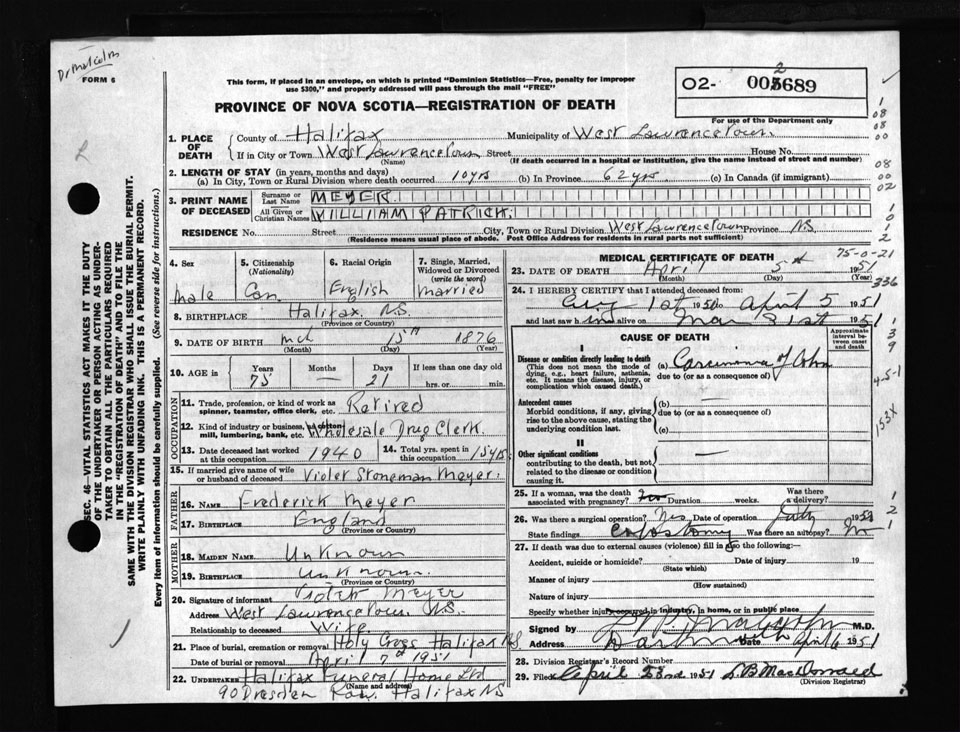 Dr Malcolm
FORM 6
This form, if placed in an envelope, on which is printed "Dominion Statistics—Free, penalty for improper
use $300," and properly addressed will pass through the mail "FREE"
PROVINCE OF NOVA SCOTIA—REGISTRATION OF DEATH
02- 005689
2
For use of the Department only
1. PLACE OF DEATH
County of Halifax Municipality of West Lawrencetown.
If in City or Town West Lawrencetown Street House No.
(Name) (If death occurred in a hospital or institution, give the name instead of street and number)
2. LENGTH OF STAY (in years, months and days)
(a) In City, Town or Rural Division where death occurred 10 yrs (b) In Province 62 yrs. (c) In Canada (if immigrant)
3. PRINT NAME OF DECEASED
Surname or Last Name MEYER.
All Given or Christian Names WILLIAM PATRICK.
RESIDENCE No. Street City, Town or Rural Division West Lawrencetown Province N.S.
(Residence means usual place of abode. Post Office Address for residents in rural parts not sufficient)
4. Sex
male
5. Citizenship (Nationality)
Can.
6. Racial Origin
English
7. Single, Married, Widowed or Divorced (write the word)
married
8. BIRTHPLACE Halifax, N.S.
(Province or Country)
9. DATE OF BIRTH mch 15th 1876
(Month) (Day) (Year)
10. AGE in Years Months Days If less than one day old
75 — 21 hrs. or min.
OCCUPATION
11. Trade, profession, or kind of work as
spinner, teamster, office clerk, etc. Retired
12. Kind of industry or business, as cotton
mill, lumbering, bank, etc. Wholesale Drug Clerk.
13. Date deceased last worked at this occupation 1940
14. Total yrs. spent in this occupation 15 yrs.
15. If married give name of wife
or husband of deceased Violet Stoneman Meyer.
FATHER
16. NAME Frederick Meyer
17. BIRTHPLACE England
(Province or Country)
MOTHER
18. MAIDEN NAME Unknown
19. BIRTHPLACE unknown.
(Province or Country)
20. Signature of informant Violet Meyer
Address West Lawrencetown N.S.
Relationship to deceased Wife
21. Place of burial, cremation or removal Holy Cross Halifax N.S.
Date of burial or removal April 7th 1951
22. UNDERTAKER Halifax Funeral Home Ltd
(Name and address)
90 Dresden Row. Halifax N.S
MEDICAL CERTIFICATE OF DEATH
23. DATE OF DEATH April 5th 1951
(Month) (Day) (Year)
24. I HEREBY CERTIFY that I attended deceased from:
Aug 1st 1950 to April 5 1951
and last saw him alive on Mar 31st 1951
CAUSE OF DEATH
Approximate interval between onset and death
I
Disease or condition directly leading to death
(This does not mean the mode of
dying, e.g., heart failure, asthenia,
etc. It means the disease, injury, or
complication which caused death.)
(a) Carcinoma of Colon
due to (or as a consequence of)
Antecedent causes
Morbid conditions, if any, giving
rise to the above cause, stating the
underlying condition last.
(b) —
due to (or as a consequence of)
(c)
II
Other significant conditions
contributing to the death, but not
related to the disease or condition
causing it.
—
25. If a woman, was the death
associated with pregnancy? Duration weeks. Was there a delivery?
26. Was there a surgical operation? Yes Date of operation July 1950
State findings Colostomy Was there an autopsy?
27. If death was due to external causes (violence) fill in also the following:—
Accident, suicide or homicide? Date of injury 19
(State which)
Manner of injury
(How sustained)
Nature of injury
Specify whether injury occurred in industry, in home, or in public place
Signed by Malcolm M.D.
Address Dartmouth Date April 6 1951
28. Division Registrar's Record Number
29. Filed April 1951 L.B MacDonald
(Division Registrar)
SEC. 46—VITAL STATISTICS ACT MAKES IT THE DUTY
OF THE UNDERTAKER OR PERSON ACTING AS UNDER-
TAKER TO OBTAIN ALL THE PARTICULARS REQUIRED
IN THE "REGISTRATION OF DEATH" AND TO FILE THE
SAME WITH THE DIVISION REGISTRAR WHO SHALL ISSUE THE BURIAL PERMIT.
WRITE PLAINLY WITH UNFADING INK. THIS IS A PERMANENT RECORD.
Every item of information should be carefully supplied. (See reverse side for instructions.)
1
08
08
00
08
00
02
1
0
1
2
75-0-21
336
1
3
9
45-1
153X
1
2
1